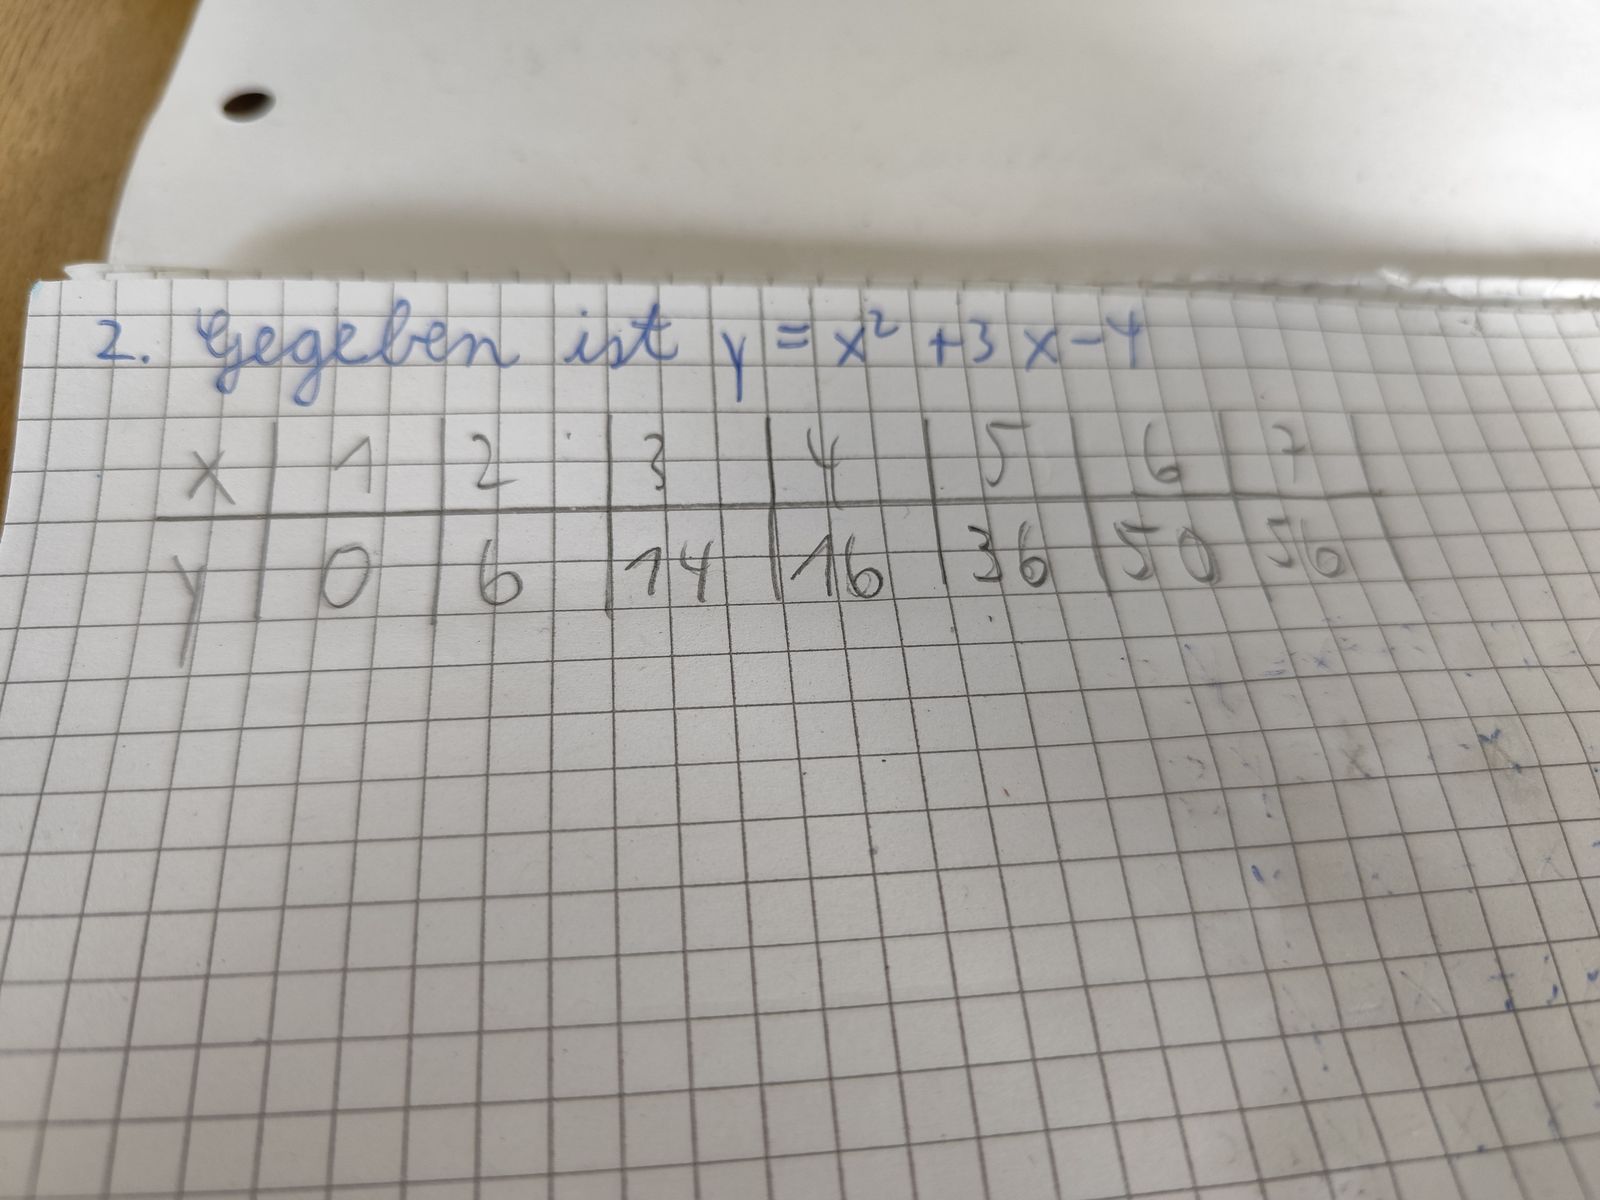 2. Gegeben ist y = x² + 3x - 4
x | 1 | 2 | 3 | 4 | 5 | 6 | 7
y | 0 | 6 | 14 | 16 | 36 | 50 | 56